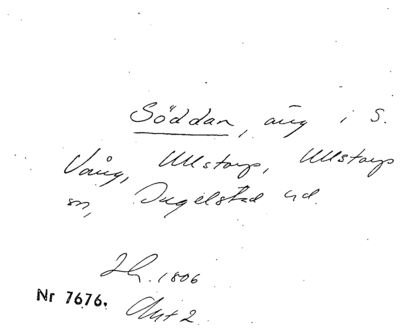 Söddan, äng i S.
Vång, Ullstorps, Ullstorps
sn, Ingelstad hd.
Lh. 1806
Nr 7676. Akt 2